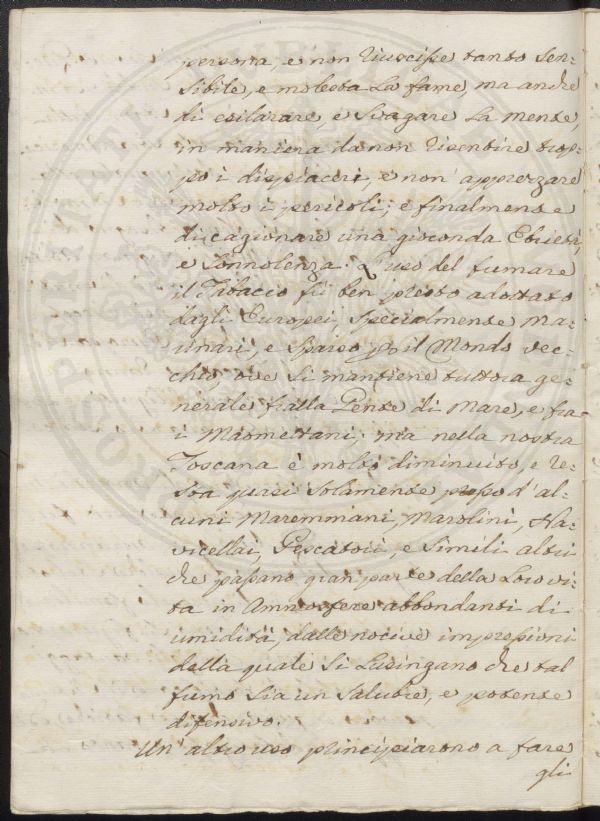 persona, e non riuscisse tanto sen=
sibile, e molesta la fame, ma anche
di esilarare, e svagare la mente,
in maniera da non risentire trop=
po i dispiaceri, e non apprezzare
molto i pericoli; e finalmente
di cagionare una gioconda Ebrietà,
e sonnolenza. L'uso del fumare
il Tabacco fù ben presto adottato
dagli Europei, specialmente Ma=
rinari, e sparso p il Mondo vec=
chio, ove si mantiene tuttora ge=
nerale fralla Gente di Mare, e fra
i Maomettani; ma nella nostra
Toscana è molto diminuito, e re=
sta quasi solamente presso d'al=
cuni Maremmani, Marolini, Na=
vicellai, Pescatori, e simili altri
che passano gran parte della loro vi=
ta in Atmosfere abbondanti di
umidità, dalle nocive impressioni
della quale si lusingano che tal
fumo sia un salubre, e potente
difensivo.
Un' altro uso principiarono a fare
gli